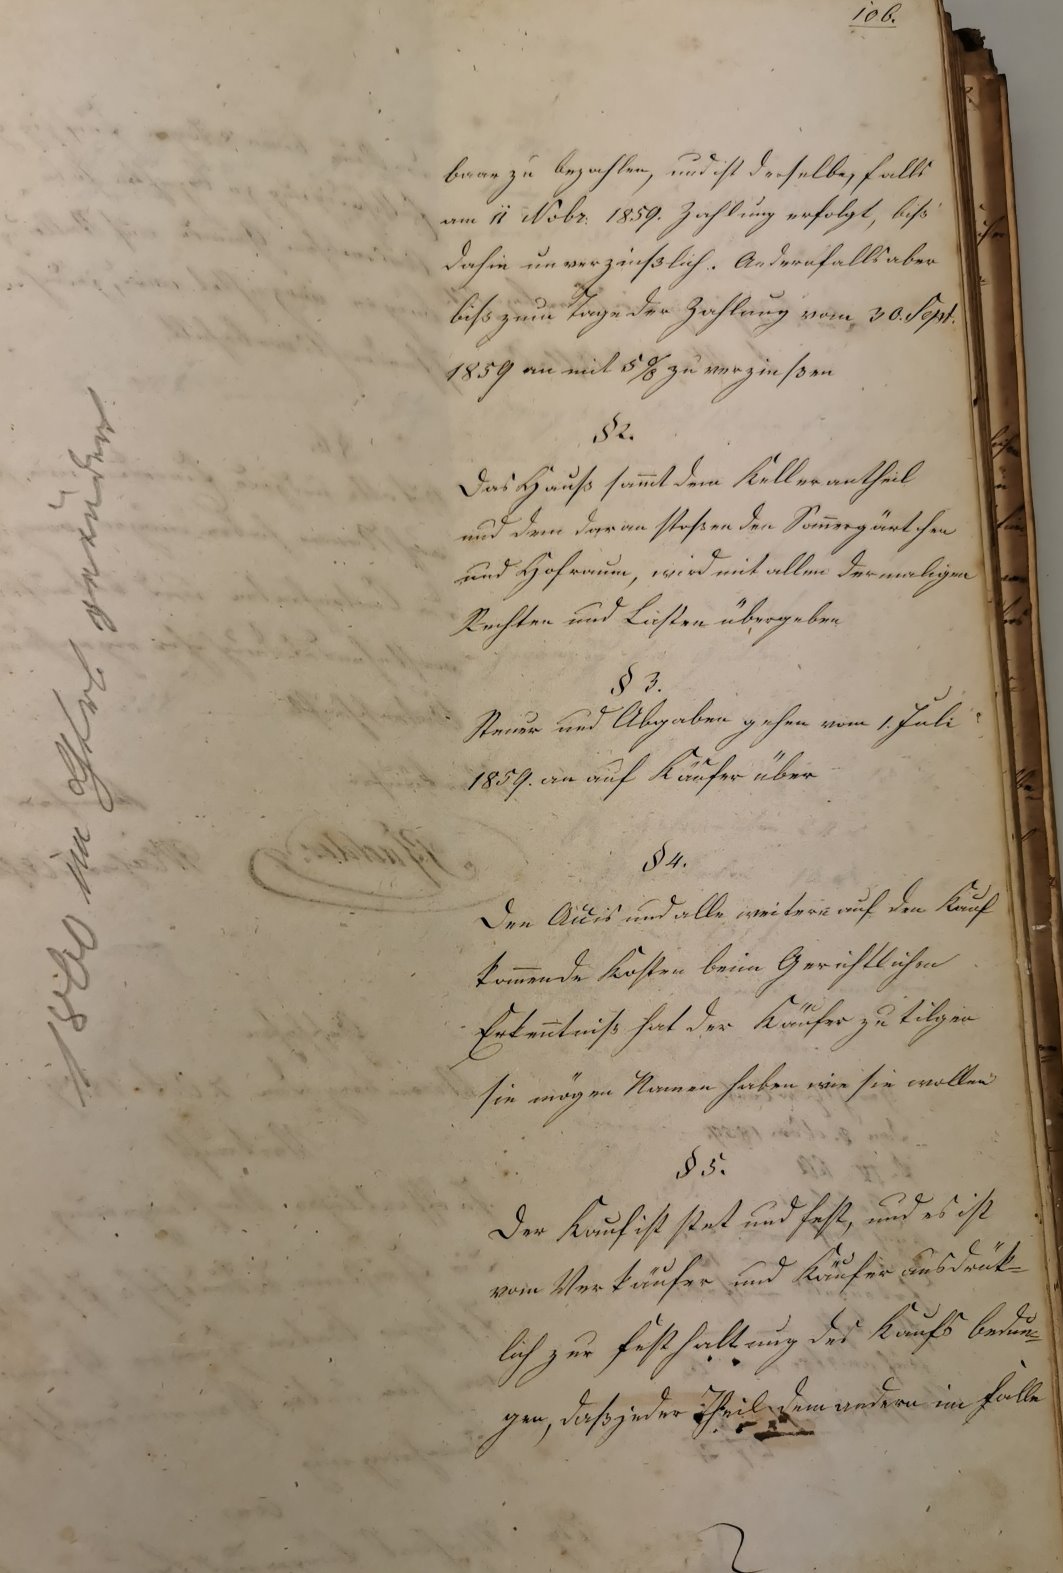 106.
baar zu bezahlen, und ist derselbe, falls
am 11 Nobr. 1859. Zahlung erfolgt, biß
dahin unverzinßlich. Andernfalls aber
biß zum Tage der Zahlung vom 30. Sept.
1859 an mit 5 % zu verzinßen
§ 2.
Das Hauß sammt dem Kellerantheil
und dem daran stoßenden Sommergärtchen
und Hofraum, wird mit allen dermaligen
Rechten und Lasten übergeben
§ 3.
Steuer und Abgaben gehen vom 1. Juli
1859. an auf Käufer über
§ 4.
Den Accis und alle weitere auf den Kauf
kommende Kosten beim Gerichtlichen
Erkenntniß hat der Käufer zu tilgen
sie mögen Namen haben wie sie wollen
§ 5.
Der Kauf ist stet und fest, und es ist
vom Verkäufer und Käufer ausdrük-
lich zur Festhaltung des Kaufs bedun-
gen, daß jeder Theil dem andern im Falle